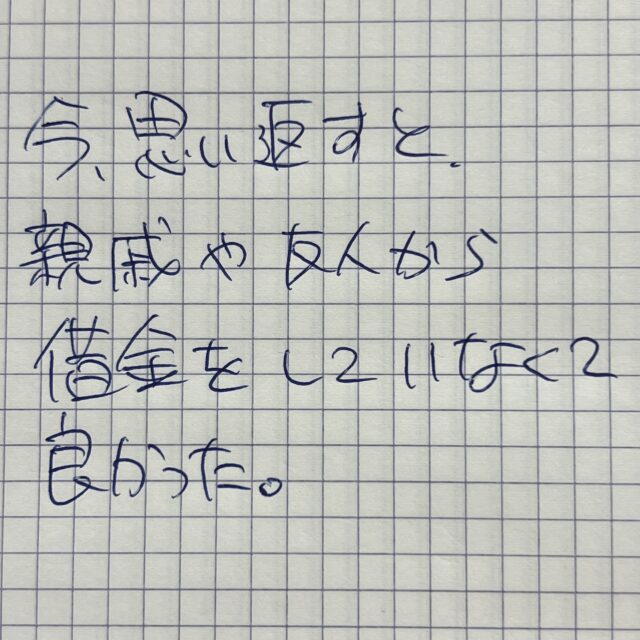 今、思い返すと、
親戚や友人から
借金をしていなくて
良かった。